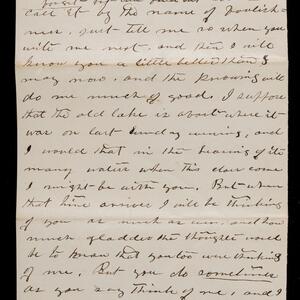 call it by the name of foolish-
ness, just tell me so when you
write me next, and then I will
know you a little better than I
may now, and the knowing will
do me much of good. I suppose
that the old lake is about where it
was on last Sunday evening, and
I would that in the hearing of its
many waters when this does come
I might be with you. But when
that time arrives I will be thinking
of you as much as ever, and how
much gladder the thoughts would
be to know that you too were thinking
of me. But you do sometimes
as you say think of me, and I